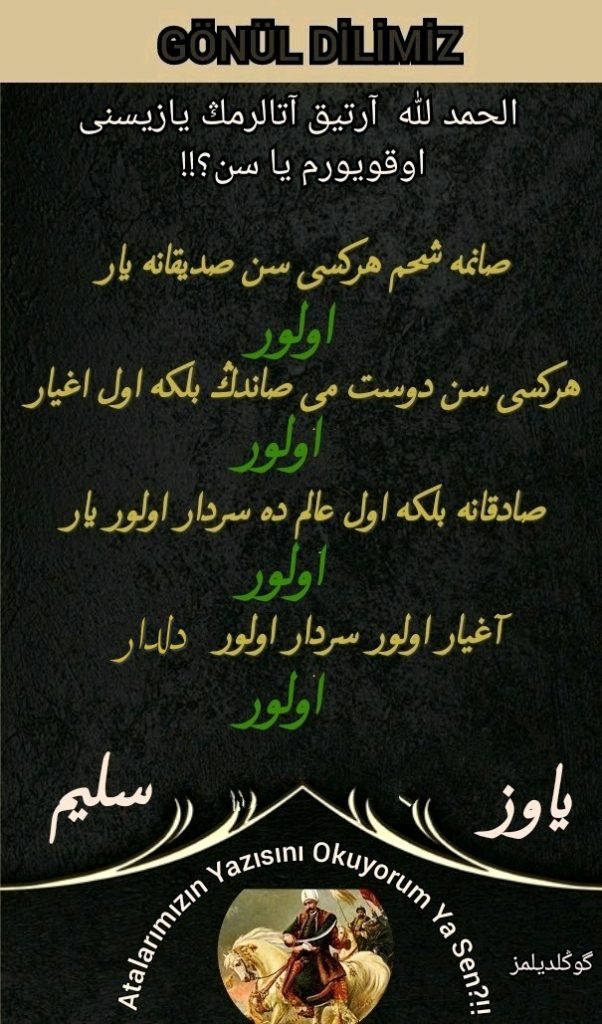 GÖNÜL DİLİMİZ
الحمد لله آرتيق آتالرمڭ يازيسنى
اوقويورم يا سن؟!!
صانمه شحم هركسى سن صديقانه يار
اولور
هركسى سن دوست مى صاندڭ بلكه اول اغيار
اولور
صادقانه بلكه اول عالم ده سردار اولور يار
اولور
آغيار اولور سردار اولور دلدار
اولور
ياوز سليم
Atalarımızın Yazısını Okuyorum Ya Sen?!!
گوڭلديلمز